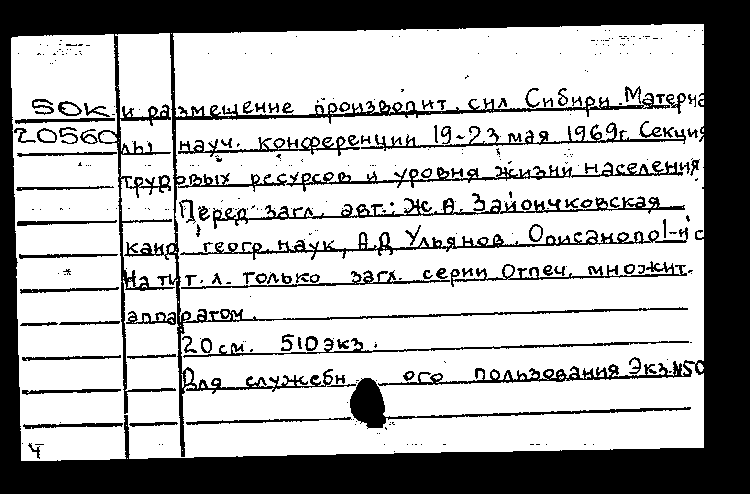 50К и размещение производит. сил Сибири. Материа
20560 лы науч. конференции 19-23 мая 1969г. Секция
трудовых ресурсов и уровня жизни населения
Перед загл. авт.: Ж.А. Зайончковская
канд. геогр. наук, А.Д Ульянов. Описанопо1-й с
На тит. л. только загл. серии Отпеч. множит.
аппаратом.
20 см. 510 экз.
Для служебн ого пользования Экз.№50
4